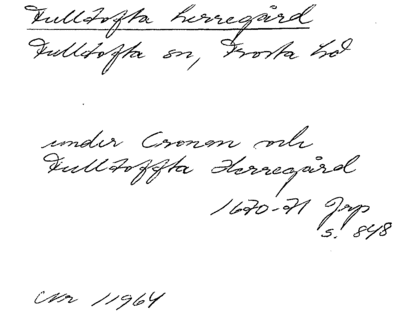 Fulltofta herregård
Fulltofta sn, Frosta hd
under Cronan och
Fulltoffta Herregård
1670-71 Jrp
s. 848
Nr 11964